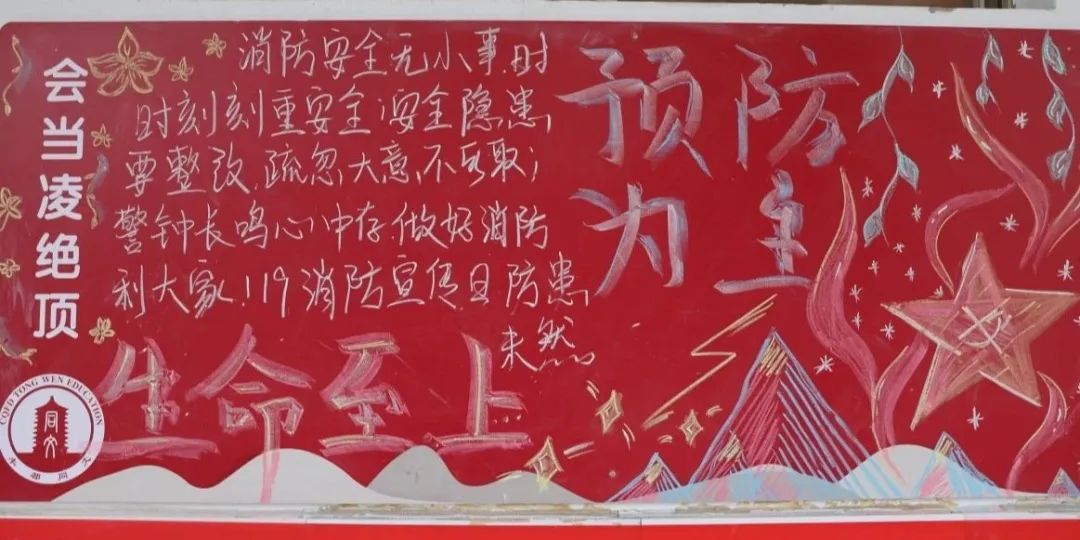 会当凌绝顶
消防安全无小事,时
时刻刻重安全;安全隐患
要整改,疏忽大意不可取;
警钟长鸣心中存,做好消防
利大家!119消防宣传日防患
未然。
预防
为主
生命至上
TONG WEN EDUCATION
同文